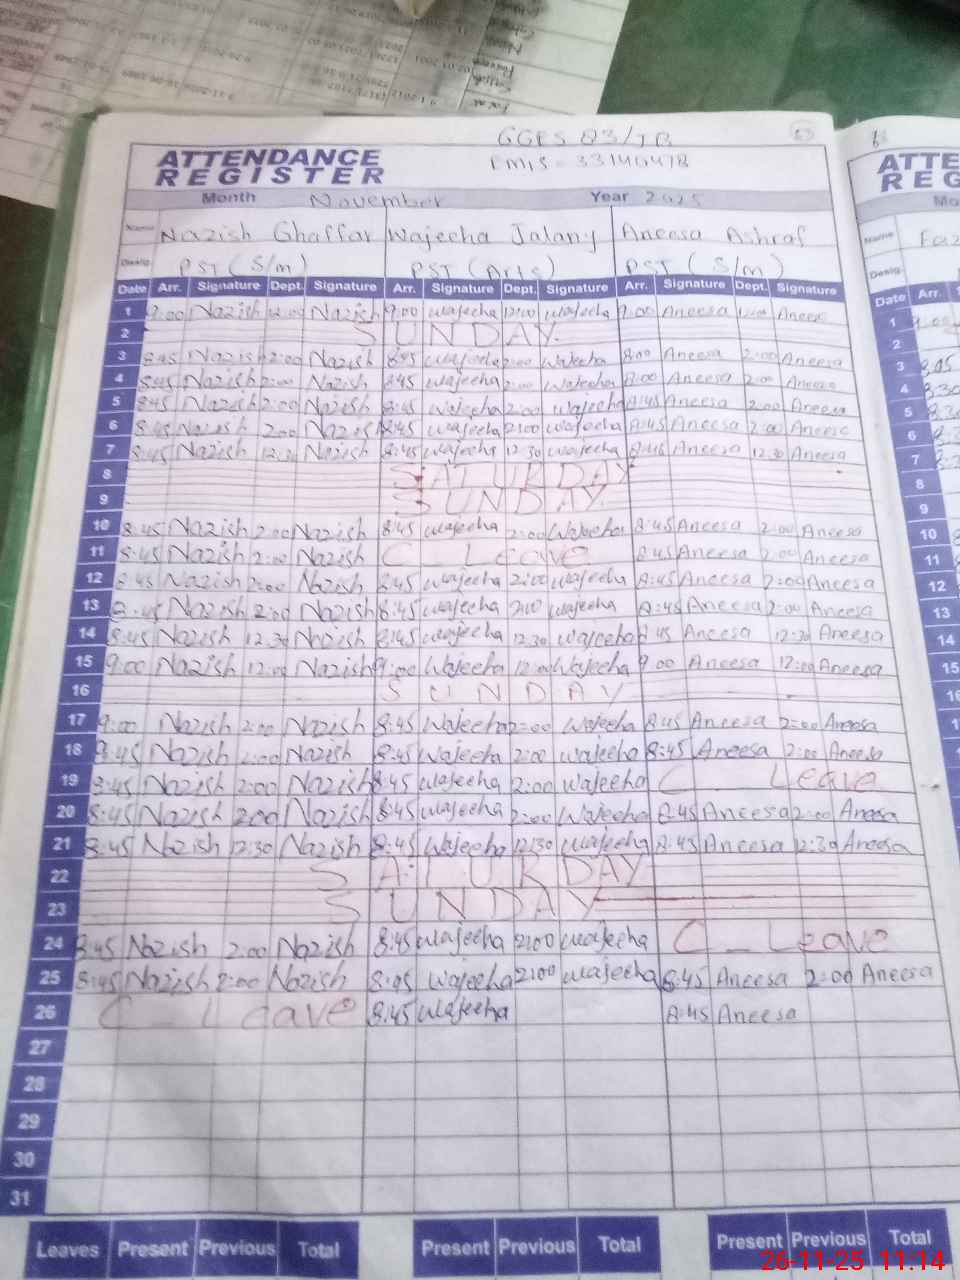 GGPS 83/JB
EMIS = 33140478
ATTENDANCE
REGISTER
Month November Year 2025
Name Nazish Ghaffar Wajeeha Jalany Aneesa Ashraf
Desig. PST (S/m) PST (Arts) PST (S/m)
Date Arr. Signature Dept. Signature Arr. Signature Dept. Signature Arr. Signature Dept. Signature
1 9:00 Nazish 12:00 Nazish 9:00 wajeeha 12:00 wajeeha 9:00 Aneesa 12:00 Aneesa
2 SUNDAY
3 8:45 Nazish 2:00 Nazish 8:45 wajeeha 2:00 wajeeha 8:00 Aneesa 2:00 Aneesa
4 8:45 Nazish 2:00 Nazish 8:45 wajeeha 2:00 wajeeha 8:00 Aneesa 2:00 Aneesa
5 8:45 Nazish 2:00 Nazish 8:45 wajeeha 2:00 wajeeha 8:45 Aneesa 2:00 Aneesa
6 8:45 Nazish 2:00 Nazish 8:45 wajeeha 2:00 wajeeha 8:45 Aneesa 2:00 Aneesa
7 8:45 Nazish 12:30 Nazish 8:45 wajeeha 12:30 wajeeha 8:45 Aneesa 12:30 Aneesa
8 SATURDAY
9 SUNDAY
10 8:45 Nazish 2:00 Nazish 8:45 wajeeha 2:00 Wajeeha 8:45 Aneesa 2:00 Aneesa
11 8:45 Nazish 2:00 Nazish C Leave 8:45 Aneesa 2:00 Aneesa
12 8:45 Nazish 2:00 Nazish 8:45 wajeeha 2:00 wajeeha 8:45 Aneesa 2:00 Aneesa
13 8:45 Nazish 2:00 Nazish 8:45 wajeeha 2:00 wajeeha 8:45 Aneesa 2:00 Aneesa
14 8:45 Nazish 12:30 Nazish 8:45 wajeeha 12:30 wajeeha 8:45 Aneesa 12:30 Aneesa
15 9:00 Nazish 12:00 Nazish 9:00 Wajeeha 12:00 Wajeeha 9:00 Aneesa 12:00 Aneesa
16 SUNDAY
17 9:00 Nazish 2:00 Nazish 8:45 Wajeeha 2:00 Wajeeha 8:45 Aneesa 2:00 Aneesa
18 8:45 Nazish 2:00 Nazish 8:45 Wajeeha 2:00 wajeeha 8:45 Aneesa 2:00 Aneesa
19 8:45 Nazish 2:00 Nazish 8:45 wajeeha 2:00 wajeeha C Leave
20 8:45 Nazish 2:00 Nazish 8:45 wajeeha 2:00 Wajeeha 8:45 Aneesa 2:00 Aneesa
21 8:45 Nazish 12:30 Nazish 8:45 Wajeeha 12:30 wajeeha 8:45 Aneesa 12:30 Aneesa
22 SATURDAY
23 SUNDAY
24 8:45 Nazish 2:00 Nazish 8:45 wajeeha 2:00 wajeeha C Leave
25 8:45 Nazish 2:00 Nazish 8:05 wajeeha 2:00 wajeeha 8:45 Aneesa 2:00 Aneesa
26 C Leave 8:45 Wajeeha 8:45 Aneesa
27
28
29
30
31
Leaves Present Previous Total Present Previous Total Present Previous Total
26-11-25 11:14